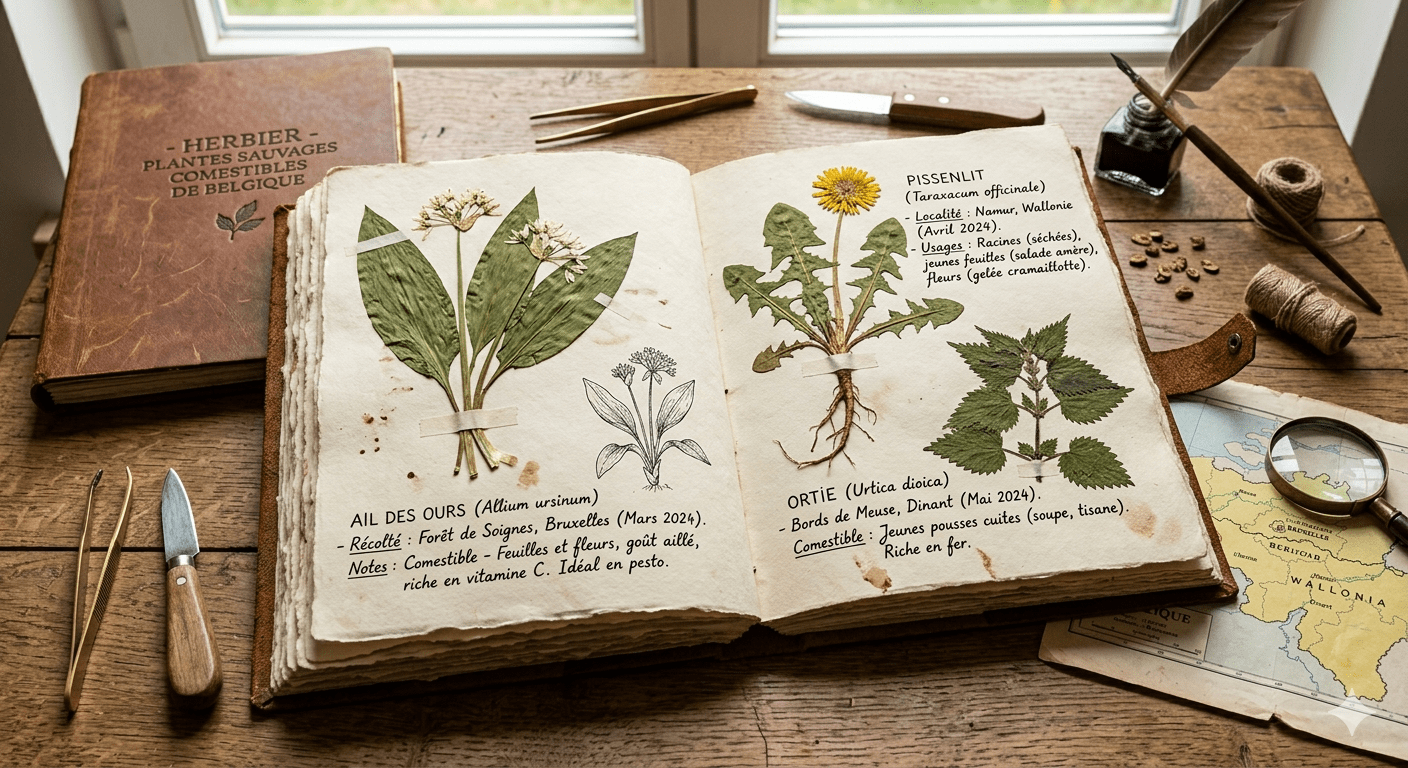 - HERBIER -
PLANTES SAUVAGES
COMESTIBLES
DE BELGIQUE
AIL DES OURS (Allium ursinum)
- Récolté : Forêt de Soignes, Bruxelles (Mars 2024).
Notes : Comestible – Feuilles et fleurs, goût aillé,
riche en vitamine C. Idéal en pesto.
PISSENLIT
(Taraxacum officinale)
- Localité : Namur, Wallonie
(Avril 2024).
- Usages : Racines (séchées),
jeunes feuilles (salade amère),
fleurs (gelée cramaillotte).
ORTIE (Urtica dioica)
- Bords de Meuse, Dinant (Mai 2024).
Comestible : Jeunes pousses cuites (soupe, tisane).
Riche en fer.
WALLONIA